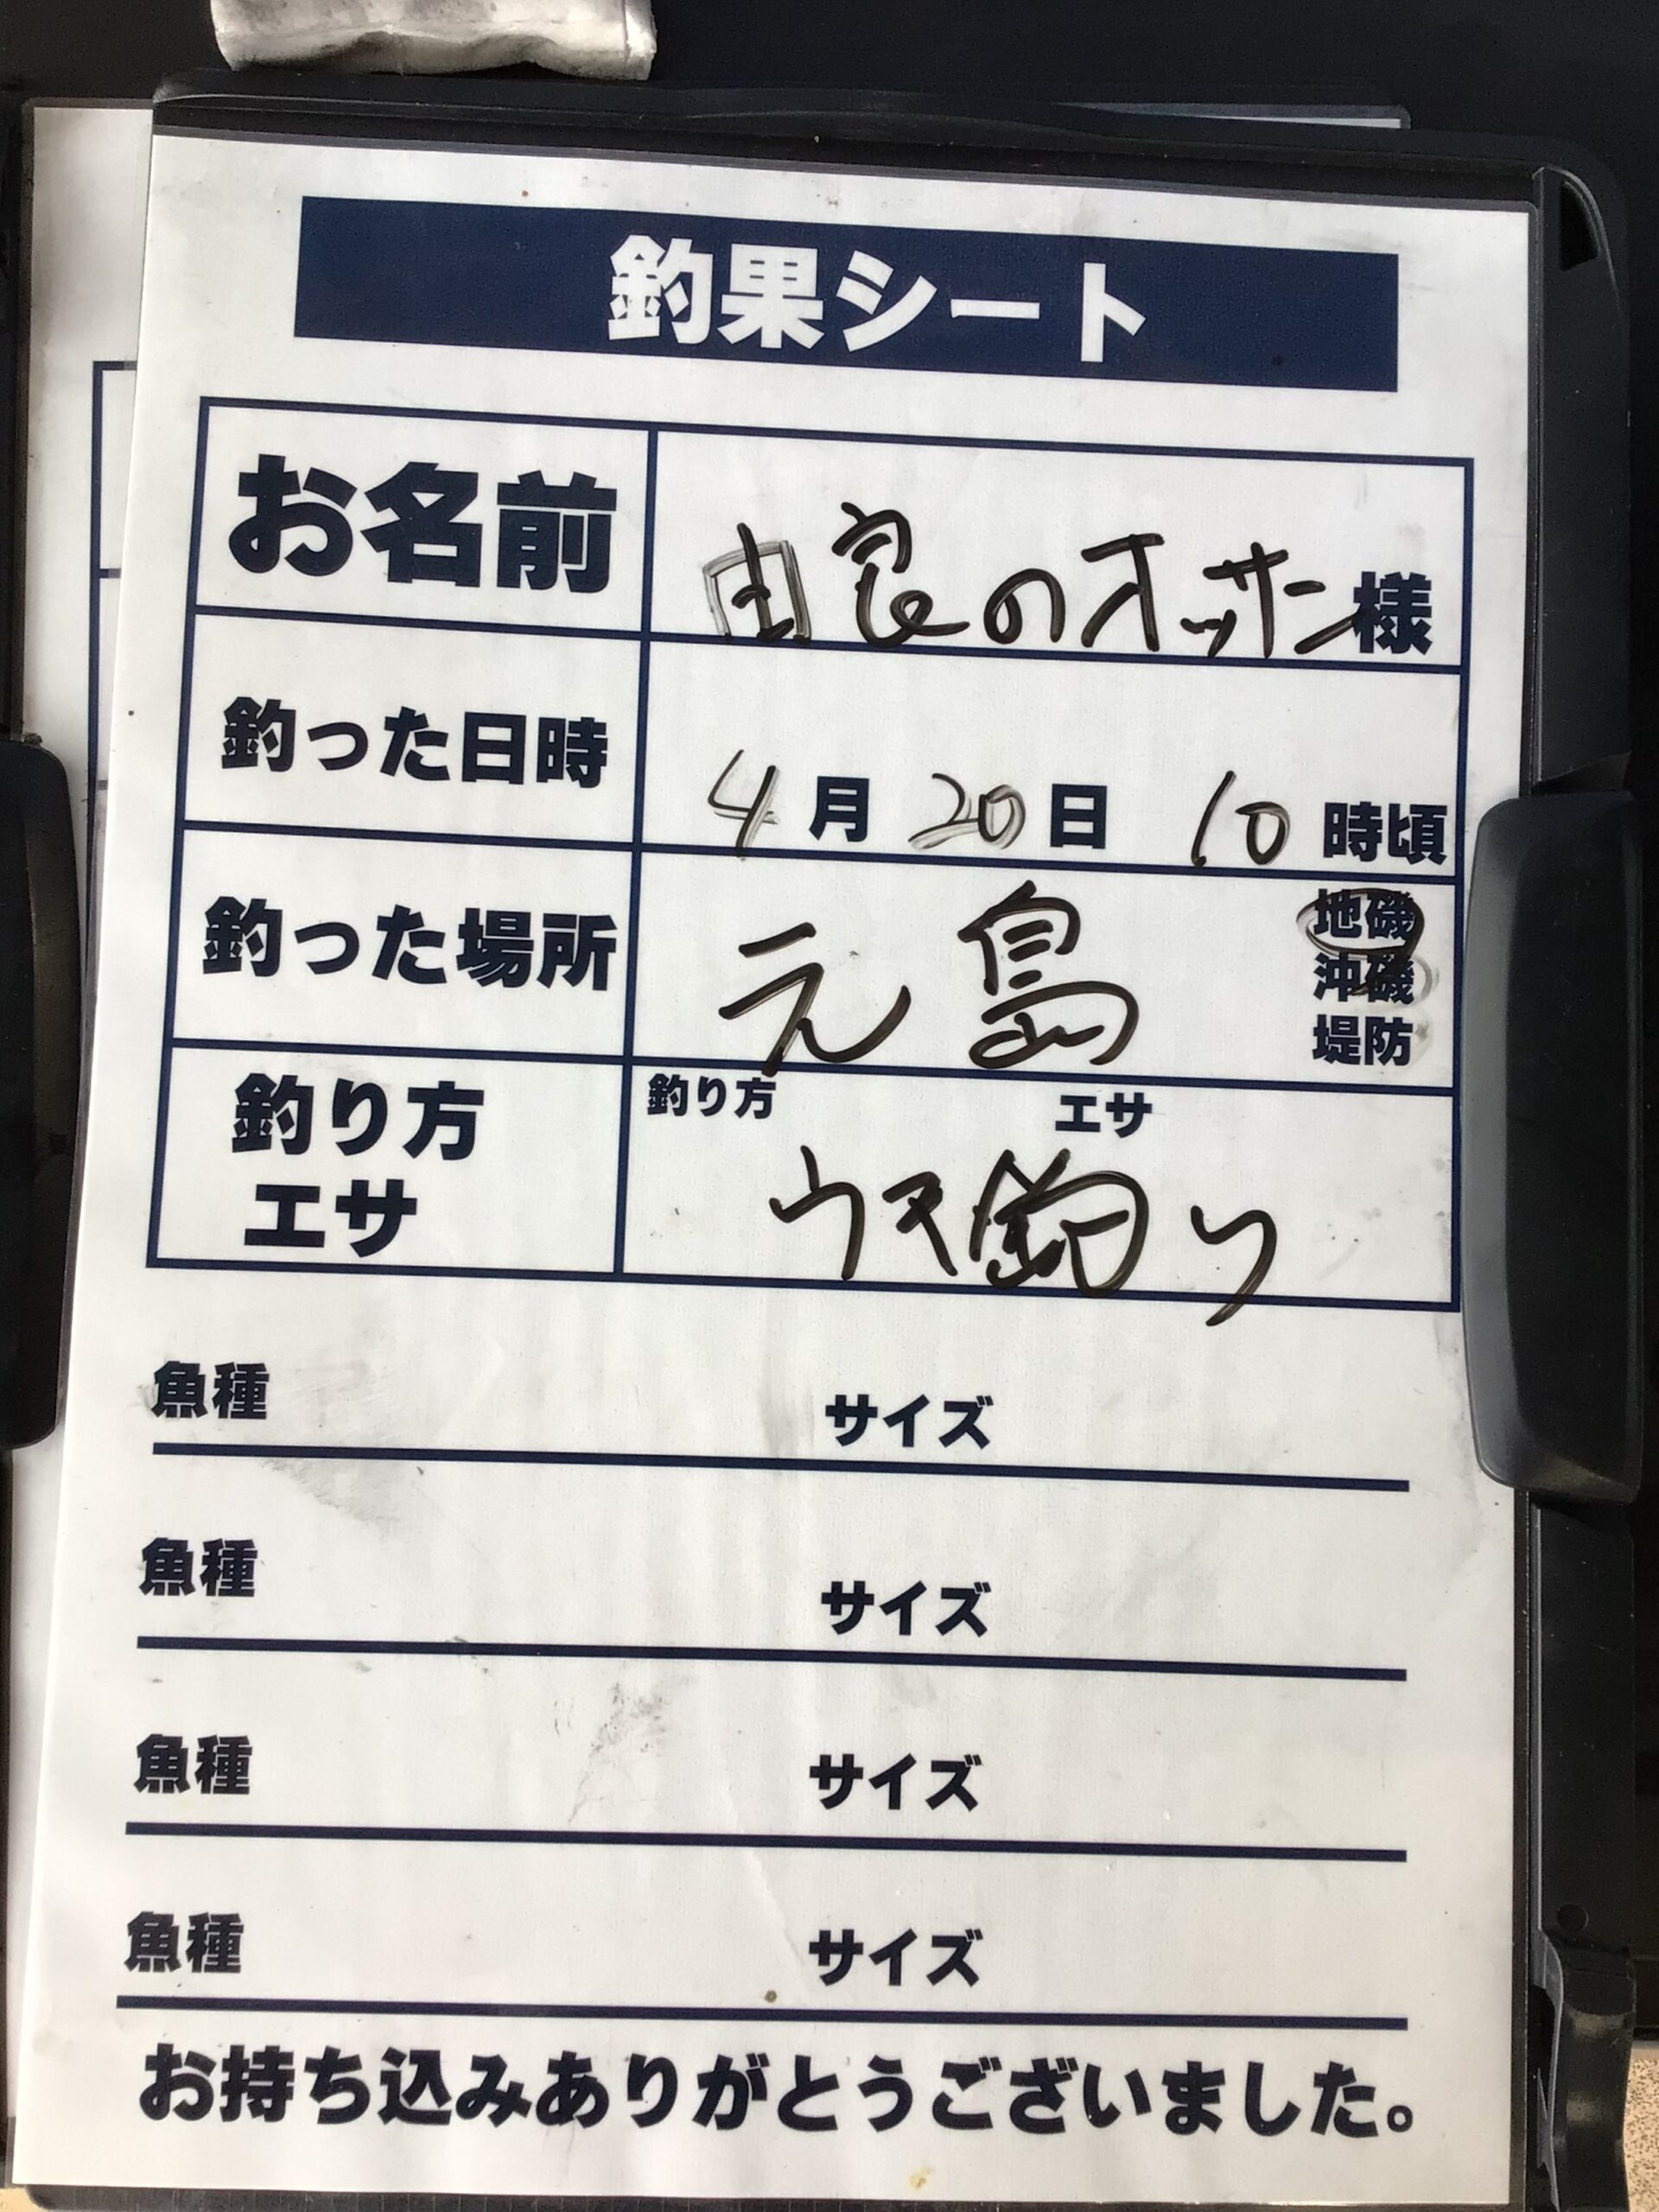 釣果シート
お名前 由良のオッサン様
釣った日時 4月20日 10時頃
釣った場所 元島 地磯
沖磯
堤防
釣り方 釣り方 エサ
エサ ウキ釣り
魚種 サイズ
魚種 サイズ
魚種 サイズ
魚種 サイズ
お持ち込みありがとうございました。